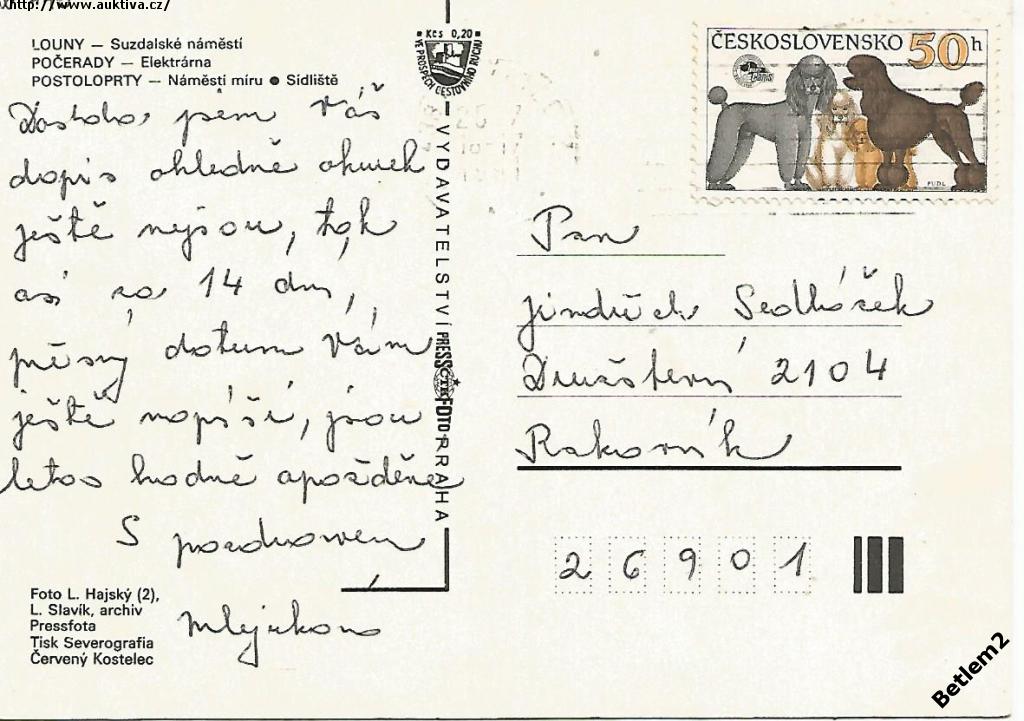 http://www.auktiva.cz/
LOUNY — Suzdalské náměstí
POČERADY — Elektrárna
POSTOLOPRTY — Náměstí míru ● Sídliště
Dostala jsem Váš
dopis ohledně okurek
ještě nejsou, tak
asi za 14 dní,
přesný datum Vám
ještě napíši, jsou
letos hodně opožděné
S pozdravem
Mlejnková
Foto L. Hajský (2),
L. Slavík, archiv
Pressfota
Tisk Severografia
Červený Kostelec
Kčs 0,20
VE PROSPĚCH CESTOVNÍHO RUCHU
VYDAVATELSTVÍ PRESSFOTO PRAHA
ČTK
ČESKOSLOVENSKO 50h
PUDL
Pan
Jindřich Sedláček
Družstevní 2104
Rakovník
26901
Betlem2